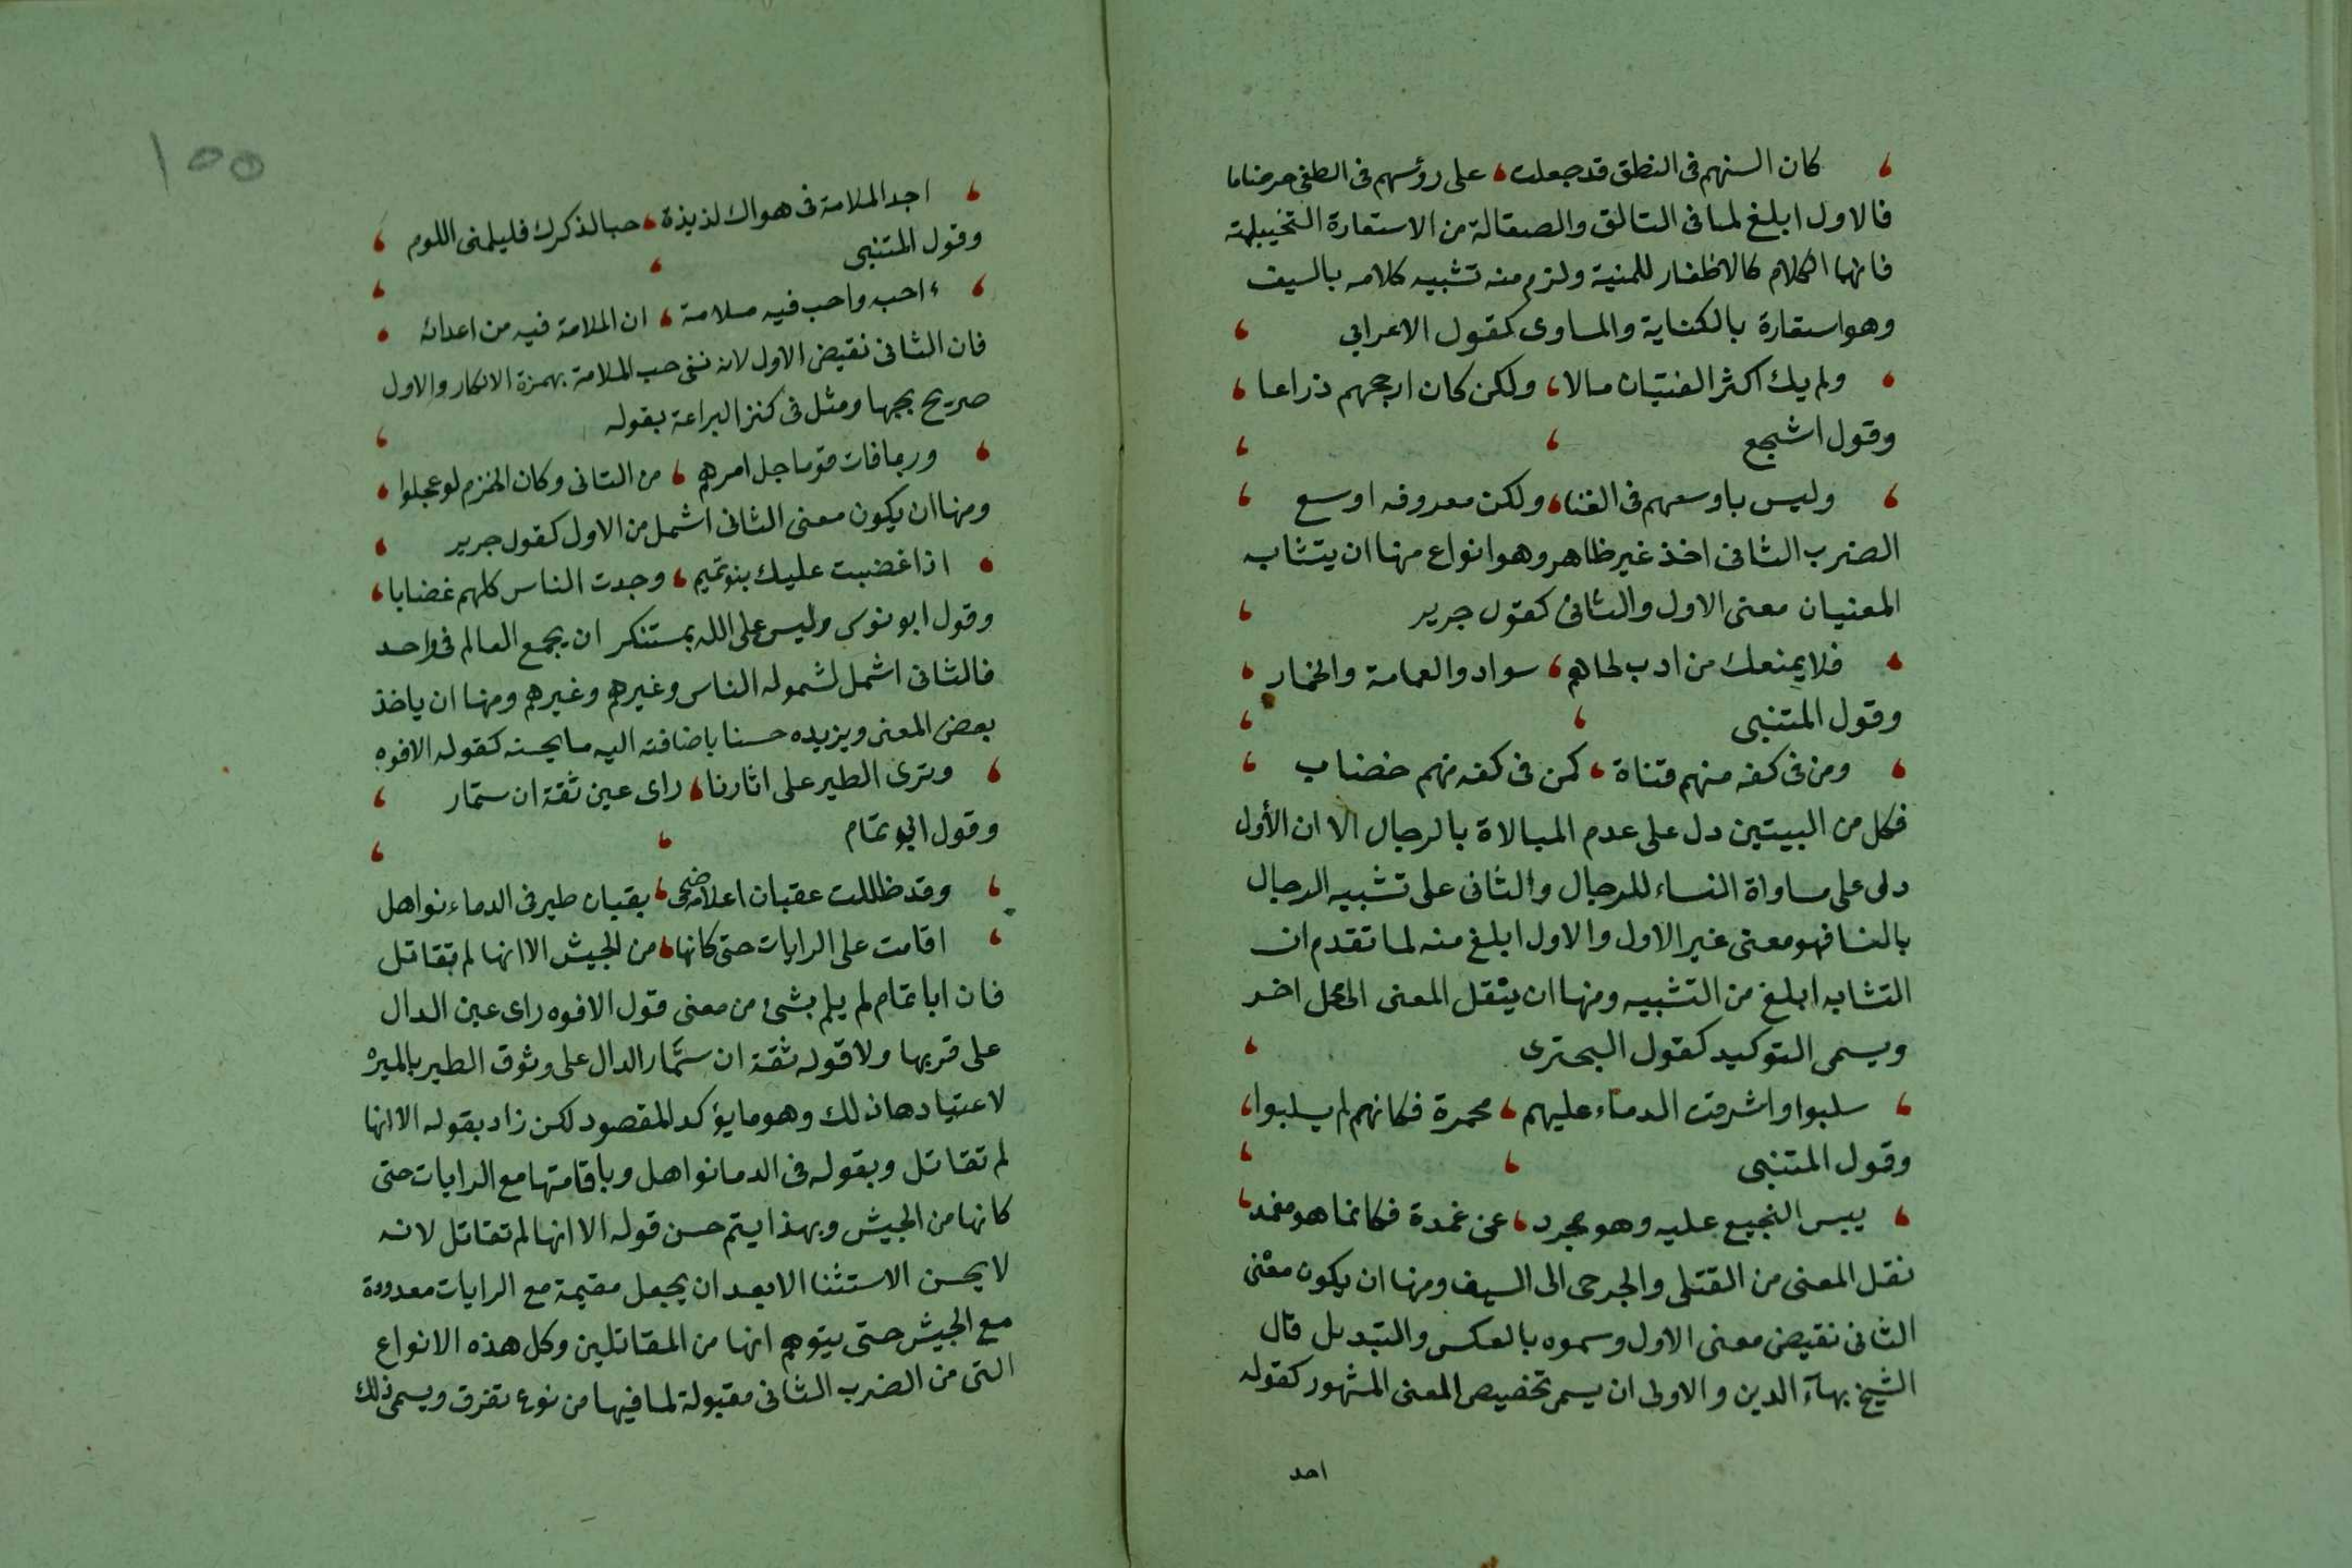 كان السنهم فى النطق قد جعلت ، على رؤسهم فى الطعن خرصانا
فالاول ابلغ لما فى التالق والصقالة من الاستعارة التخييلية
فانها الكلام كالاظفار للمنية ولزم منه تشبيه كلامه بالسيف
وهو استعارة بالكناية والمساوى كقول الاعرابي ،
، ولم يك اكثر الفتيان مالا ، ولكن كان ارحبهم ذراعا ،
وقول اشجع ، ،
، وليس باوسعهم فى الغنا ، ولكن معروفه اوسع ،
الضرب الثانى اخذ غير ظاهر وهو انواع منها ان يتشابه
المعنيان معنى الاول والثانى كقول جرير ،
، فلا يمنعك من ادب لحاهم ، سواد والعمامة والخمار ،
وقول المتنبى ، ،
، ومن فى كفه منهم قناة ، كمن فى كفه منهم خضاب ،
فكل من البيتين دل على عدم المبالاة بالرجال الا ان الأول
دلى على مساواة النساء للرجال والثانى على تشبيه الرجال
بالنسا فهو معنى غير الاول والاول ابلغ منه لما تقدم ان
التشابه ابلغ من التشبيه ومنها ان ينقل المعنى الى محل اخر
ويسمى التوكيد كقول البحترى ،
، سلبوا واشرقت الدماء عليهم ، محمرة فكانهم لم يسلبوا ،
وقول المتنبى ، ،
، يبس النجيع عليه وهو مجرد ، عن غمدة فكانما هو مغمد ،
نقل المعنى من القتلى والجرحى الى السيف ومنها ان يكون معنى
الثانى نقيض معنى الاول وسموه بالعكس والتبديل قال
الشيخ بهآء الدين والاولى ان يسمى تخصيص المعنى المشهور كقوله
احد
١٥٥
، اجد الملامة فى هواك لذيذة ، حبا لذكرك فليلمنى اللوم ،
وقول المتنبى ، ،
، ءاحبه واحب فيه ملامة ، ان الملامة فيه من اعدائه ،
فان الثانى نقيض الاول لانه نفى حب الملامة بهمزة الانكار والاول
صريح بحبها ومثل فى كنز البراعة بقوله ،
، وربما فات قوما جل امرهم ، من التانى وكان الحزم لو عجلوا ،
ومنها ان يكون معنى الثانى اشمل من الاول كقول جرير ،
، اذا غضبت عليك بنو تميم ، وجدت الناس كلهم غضابا ،
وقول ابو نوس وليس على الله بمستنكر ان يجمع العالم فى واحد
فالثانى اشمل لشموله الناس وغيرهم وغيرهم ومنها ان ياخذ
بعض المعنى ويزيده حسنا باضافته اليه ما يحسنه كقوله الافوه
، وترى الطير على اثارنا ، راى عين ثقة ان ستمار ،
وقول ابو تمام ، ،
، وقد ظللت عقبان اعلامه ضحى ، بقبان طير فى الدماء نواهل
، اقامت على الرايات حتى كانها ، من الجيش الا انها لم تقاتل
فان ابا تمام لم يلم بشئ من معنى قول الافوه راى عين الدال
على قربها ولا قوله ثقة ان ستمار الدال على وثوق الطير بالميرة
لاعتيادها ذلك وهو ما يؤكد المقصود لكن زاد بقوله الا انها
لم تقاتل وبقوله فى الدما نواهل وباقامتها مع الرايات حتى
كانها من الجيش وبهذا يتم حسن قوله الا انها لم تقاتل لانه
لا يحسن الاستثنا الا بعد ان يجعل مقيمة مع الرايات معدودة
مع الجيش حتى يتوهم انها من المقاتلين وكل هذه الانواع
التى من الضرب الثانى مقبولة لما فيها من نوع تفرق ويسمى ذلك